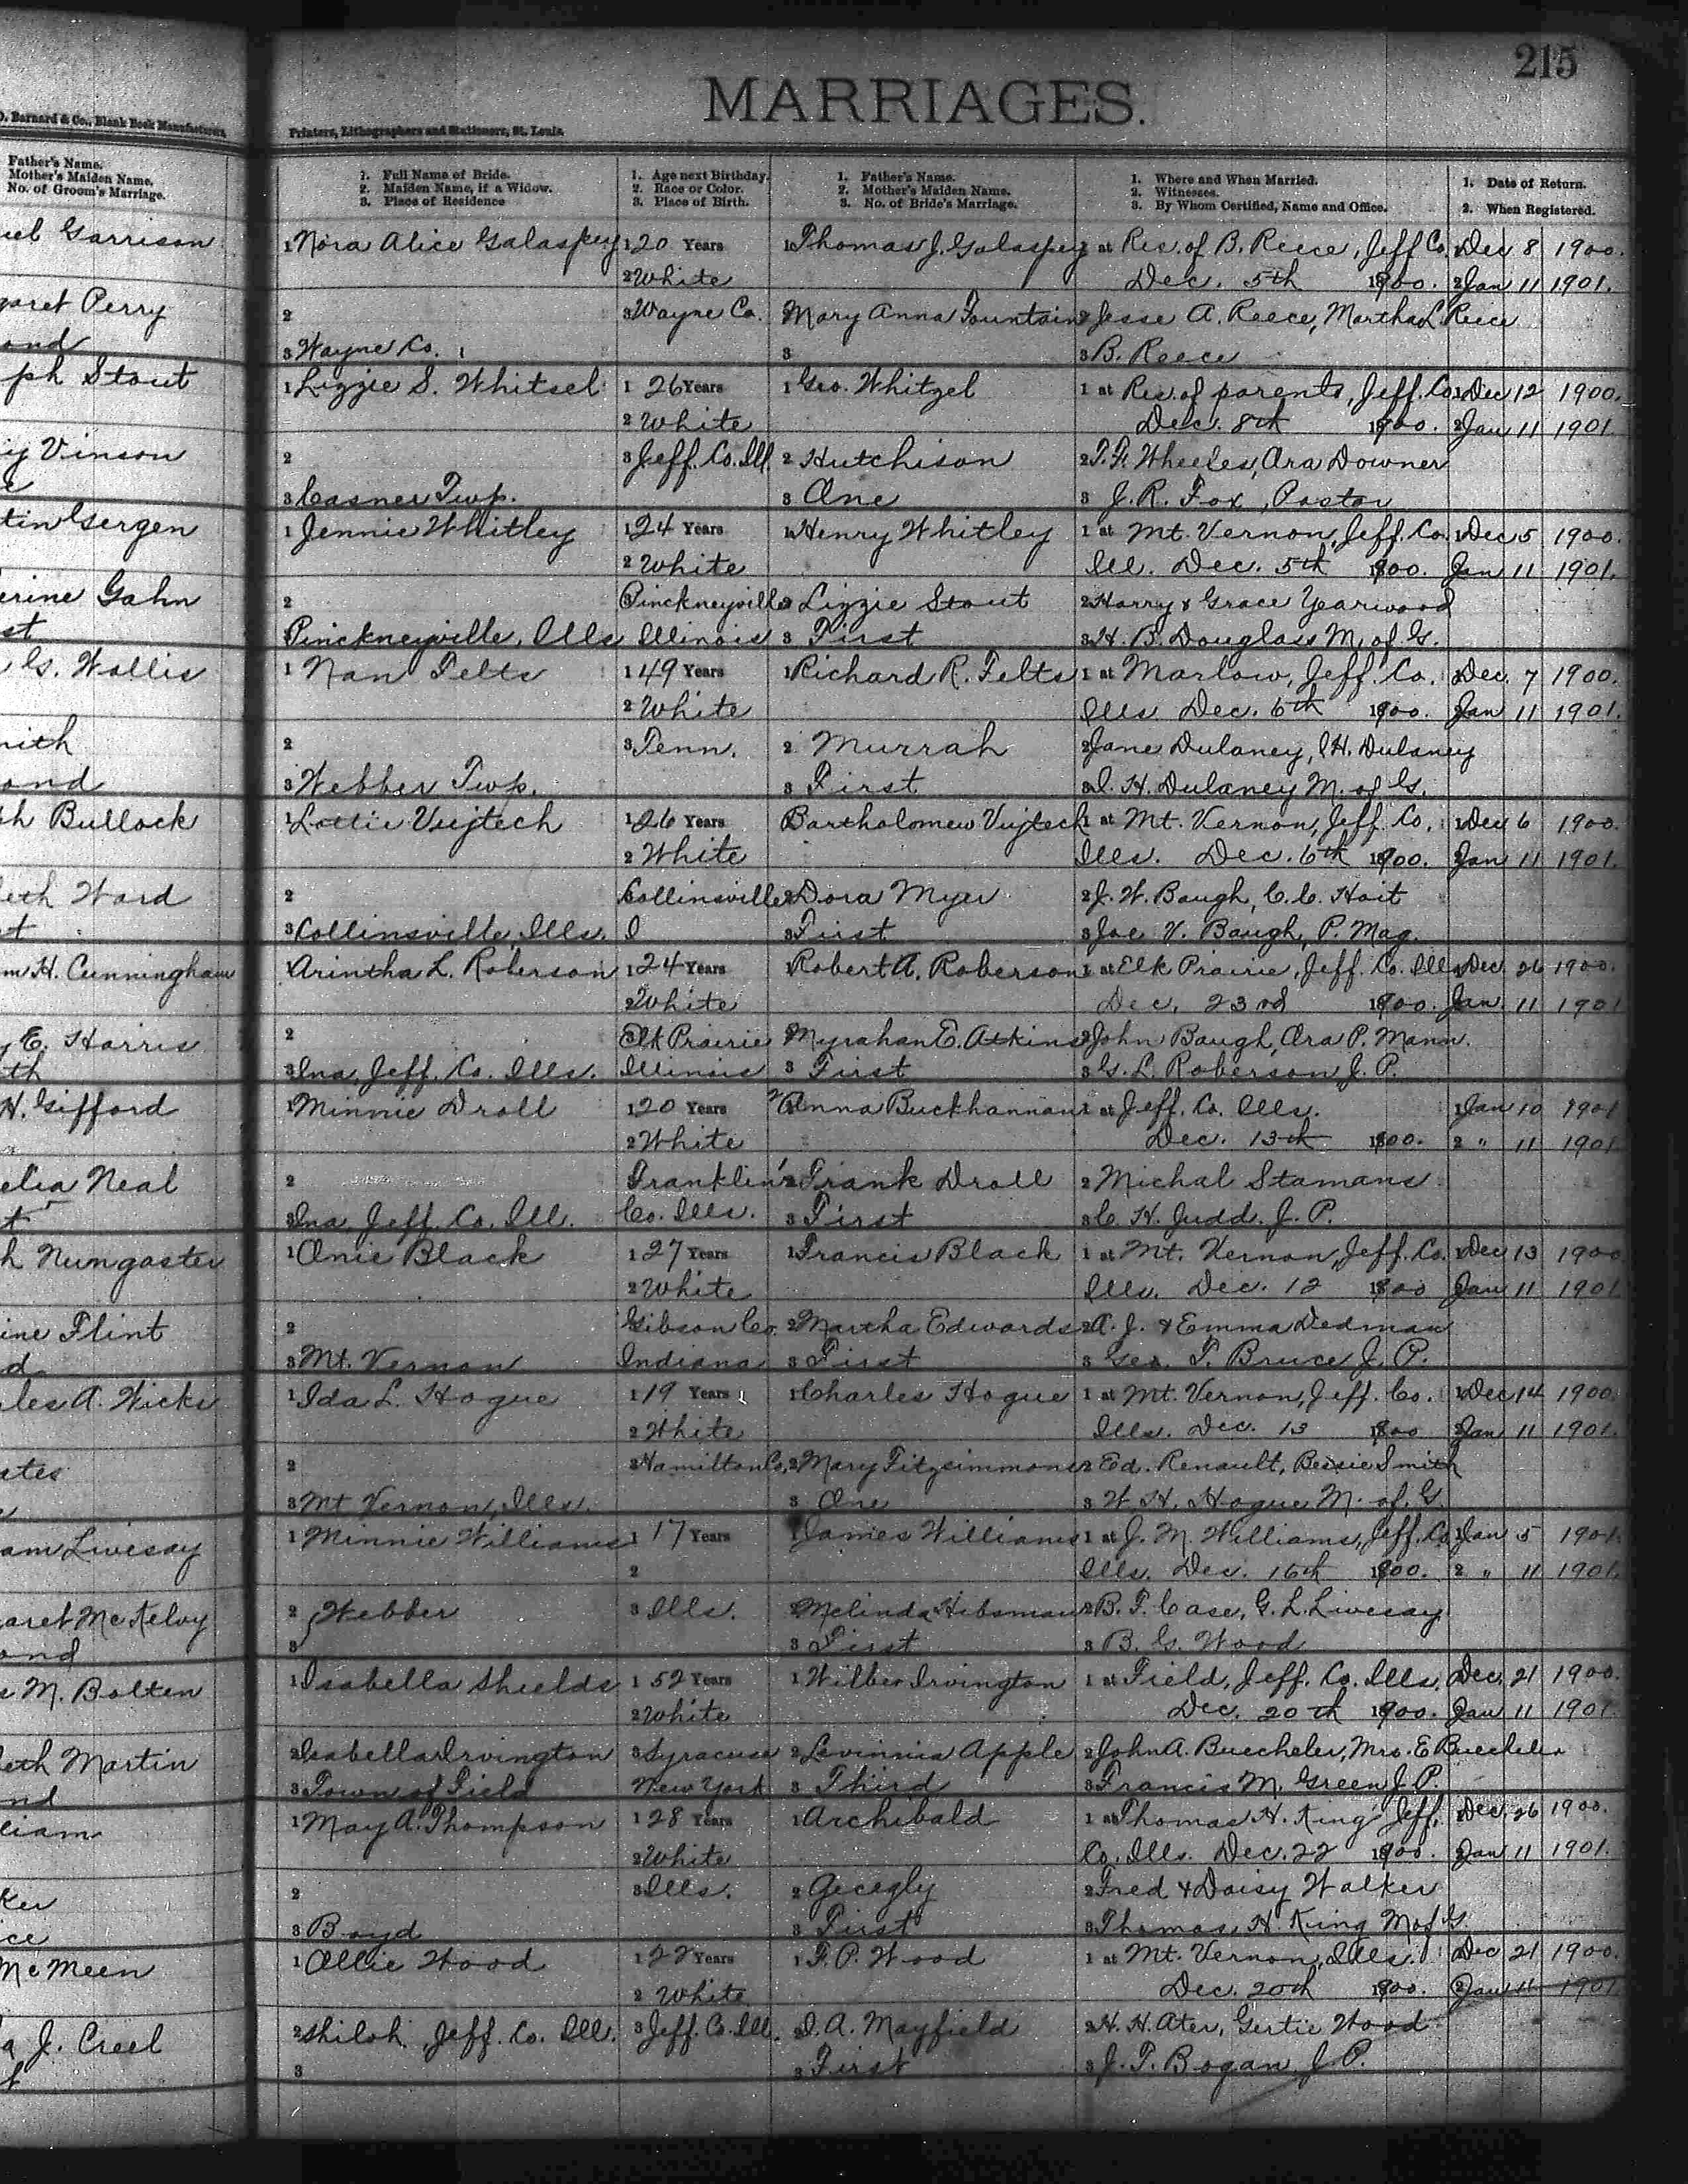 215
MARRIAGES.
D. Barnard & Co., Blank Book Manufacturers,
Printers, Lithographers and Stationers, St. Louis.
Father's Name.
Mother's Maiden Name.
No. of Groom's Marriage.
1. Full Name of Bride.
2. Maiden Name, if a Widow.
3. Place of Residence
1. Age next Birthday.
2. Race or Color.
3. Place of Birth.
1. Father's Name.
2. Mother's Maiden Name.
3. No. of Bride's Marriage.
1. Where and When Married.
2. Witnesses.
3. By Whom Certified, Name and Office.
1. Date of Return.
2. When Registered.
uel Garrison 1 Nora Alice Galaspey 1 20 Years 1 Thomas J. Galaspey 1 at Res. of B. Reece, Jeff Co. 1 Dec 8 1900.
2 White Dec. 5th 1900. 2 Jan 11 1901.
garet Perry 2 3 Wayne Co. Mary Anna Fountain 2 Jesse A. Reece, Martha L. Reece
ond 3 Wayne Co. 3 3 B. Reece
ph Stout 1 Lizzie S. Whitsel 1 26 Years 1 Geo. Whitzel 1 at Res. of parents, Jeff. Co. 1 Dec 12 1900.
2 White Dec. 8th 1900. 2 Jan 11 1901
y Vinson 2 3 Jeff. Co. Ill. 2 Hutchison 2 T. F. Wheeles, Ara Downer
e 3 Casner Twp. 3 One 3 J. R. Fox, Pastor
tin Gergen 1 Jennie Whitley 1 24 Years 1 Henry Whitley 1 at Mt. Vernon, Jeff. Co. 1 Dec 5 1900.
2 White Ill. Dec. 5th 1900. Jan 11 1901.
erine Gahn 2 3 Pinckneyville 2 Lizzie Stout 2 Harry & Grace Yearwood
st Pinckneyville, Ills Illinois 3 First 3 H. B. Douglass M. of G.
G. Wallis 1 Nan Felts 1 49 Years 1 Richard R. Felts 1 at Marlow, Jeff. Co. Dec. 7 1900.
2 White Ills Dec. 6th 1900. Jan 11 1901.
mith 2 3 Tenn. 2 Murrah 2 Jane Dulaney, I. H. Dulaney
ond 3 Webber Twp. 3 First 3 I. H. Dulaney M. of G.
h Bullock 1 Lottie Vujtech 1 26 Years Bartholomew Vujtech 1 at Mt. Vernon, Jeff. Co. 1 Dec 6 1900.
2 White Ills. Dec. 6th 1900. Jan 11 1901
eth Ward 2 Collinsville 2 Dora Myer 2 J. W. Baugh, C. C. Hoit
t 3 Collinsville, Ills. I 3 First 3 Joe V. Baugh, P. Mag.
m H. Cunningham 1 Arintha L. Roberson 1 24 Years 1 Robert A. Roberson 1 at Elk Prairie, Jeff. Co. Ills Dec. 26 1900.
2 White Dec. 23rd 1900. Jan. 11 1901
y E. Harris 2 Elk Prairie 2 Myrahan E. Atkins 2 John Baugh, Ora P. Mann.
th 3 Ina, Jeff. Co. Ills. Illinois 3 First 3 G. L. Roberson J. P.
H. Gifford 1 Minnie Droll 1 20 Years 2 Anna Buckhannan 1 at Jeff. Co. Ills. 1 Jan 10 1901
2 White Dec. 13th 1900. 2 " 11 1901
elia Neal 2 Franklin 1 Frank Droll 2 Michal Stamans
t 3 Ina, Jeff. Co. Ill. Co. Ills. 3 First 3 C. H. Judd. J. P.
h Numgaster 1 Onie Black 1 27 Years 1 Francis Black 1 at Mt. Vernon, Jeff. Co. 1 Dec 13 1900
2 White Ills. Dec. 12 1900 Jan 11 1901
ine Flint 2 Gibson Co. 2 Martha Edwards 2 A. J. & Emma Dedman
d 3 Mt. Vernon Indiana 3 First 3 Geo. T. Bruce J. P.
les A. Hicks 1 Ida L. Hogue 1 19 Years 1 Charles Hogue 1 at Mt. Vernon, Jeff. Co. 1 Dec 14 1900.
2 White Ills. Dec. 13 1900 2 Jan 11 1901.
ates 2 3 Hamilton Co. 2 Mary Fitzsimmons 2 Ed. Renault, Bessie Smith
3 Mt Vernon, Ills. 3 One 3 W. H. Hogue M. of. G.
am Livesay 1 Minnie Williams 1 17 Years 1 James Williams 1 at J. M. Williams, Jeff. Co. 1 Jan 5 1901.
2 Ills. Dec. 16th 1900. 2 " 11 1901.
aret McKelvy 2 Webber 3 Ills. 2 Melinda Hibsman 2 B. F. Case, G. L. Livesay
ond 3 3 First 3 B. G. Wood
s M. Bolten 1 Isabella Shields 1 52 Years 1 Wilber Irvington 1 at Field, Jeff. Co. Ills, Dec, 21 1900.
2 White Dec. 20th 1900. Jan 11 1901
eth Martin 2 Isabella Irvington 3 Syracuse 2 Levinnia Apple 2 John A. Buecheler, Mrs. E Buecheler
nd 3 Town of Field New York 3 Third 3 Francis M. Green J. P.
liam 1 May A. Thompson 1 28 Years 1 Archibald 1 at Thomas H. King Jeff, 1 Dec. 26 1900.
2 White Co. Ills. Dec. 22 1900. 2 Jan 11 1901.
ker 2 3 Ills. 2 Gecegly 2 Fred & Daisy Walker
ce 3 Boyd 3 First 3 Thomas H. King M of G
McMeen 1 Allie Wood 1 22 Years 1 F. P. Wood 1 at Mt. Vernon, Ills. Dec 21 1900.
2 White Dec. 20th 1900. 2 Jan 11 1901
a J. Creel 2 Shiloh, Jeff. Co. Ill. 3 Jeff. Co. Ill. 2 I. A. Mayfield 2 H. H. Ater, Gertie Wood
3 3 First 3 J. T. Bogan J. P.